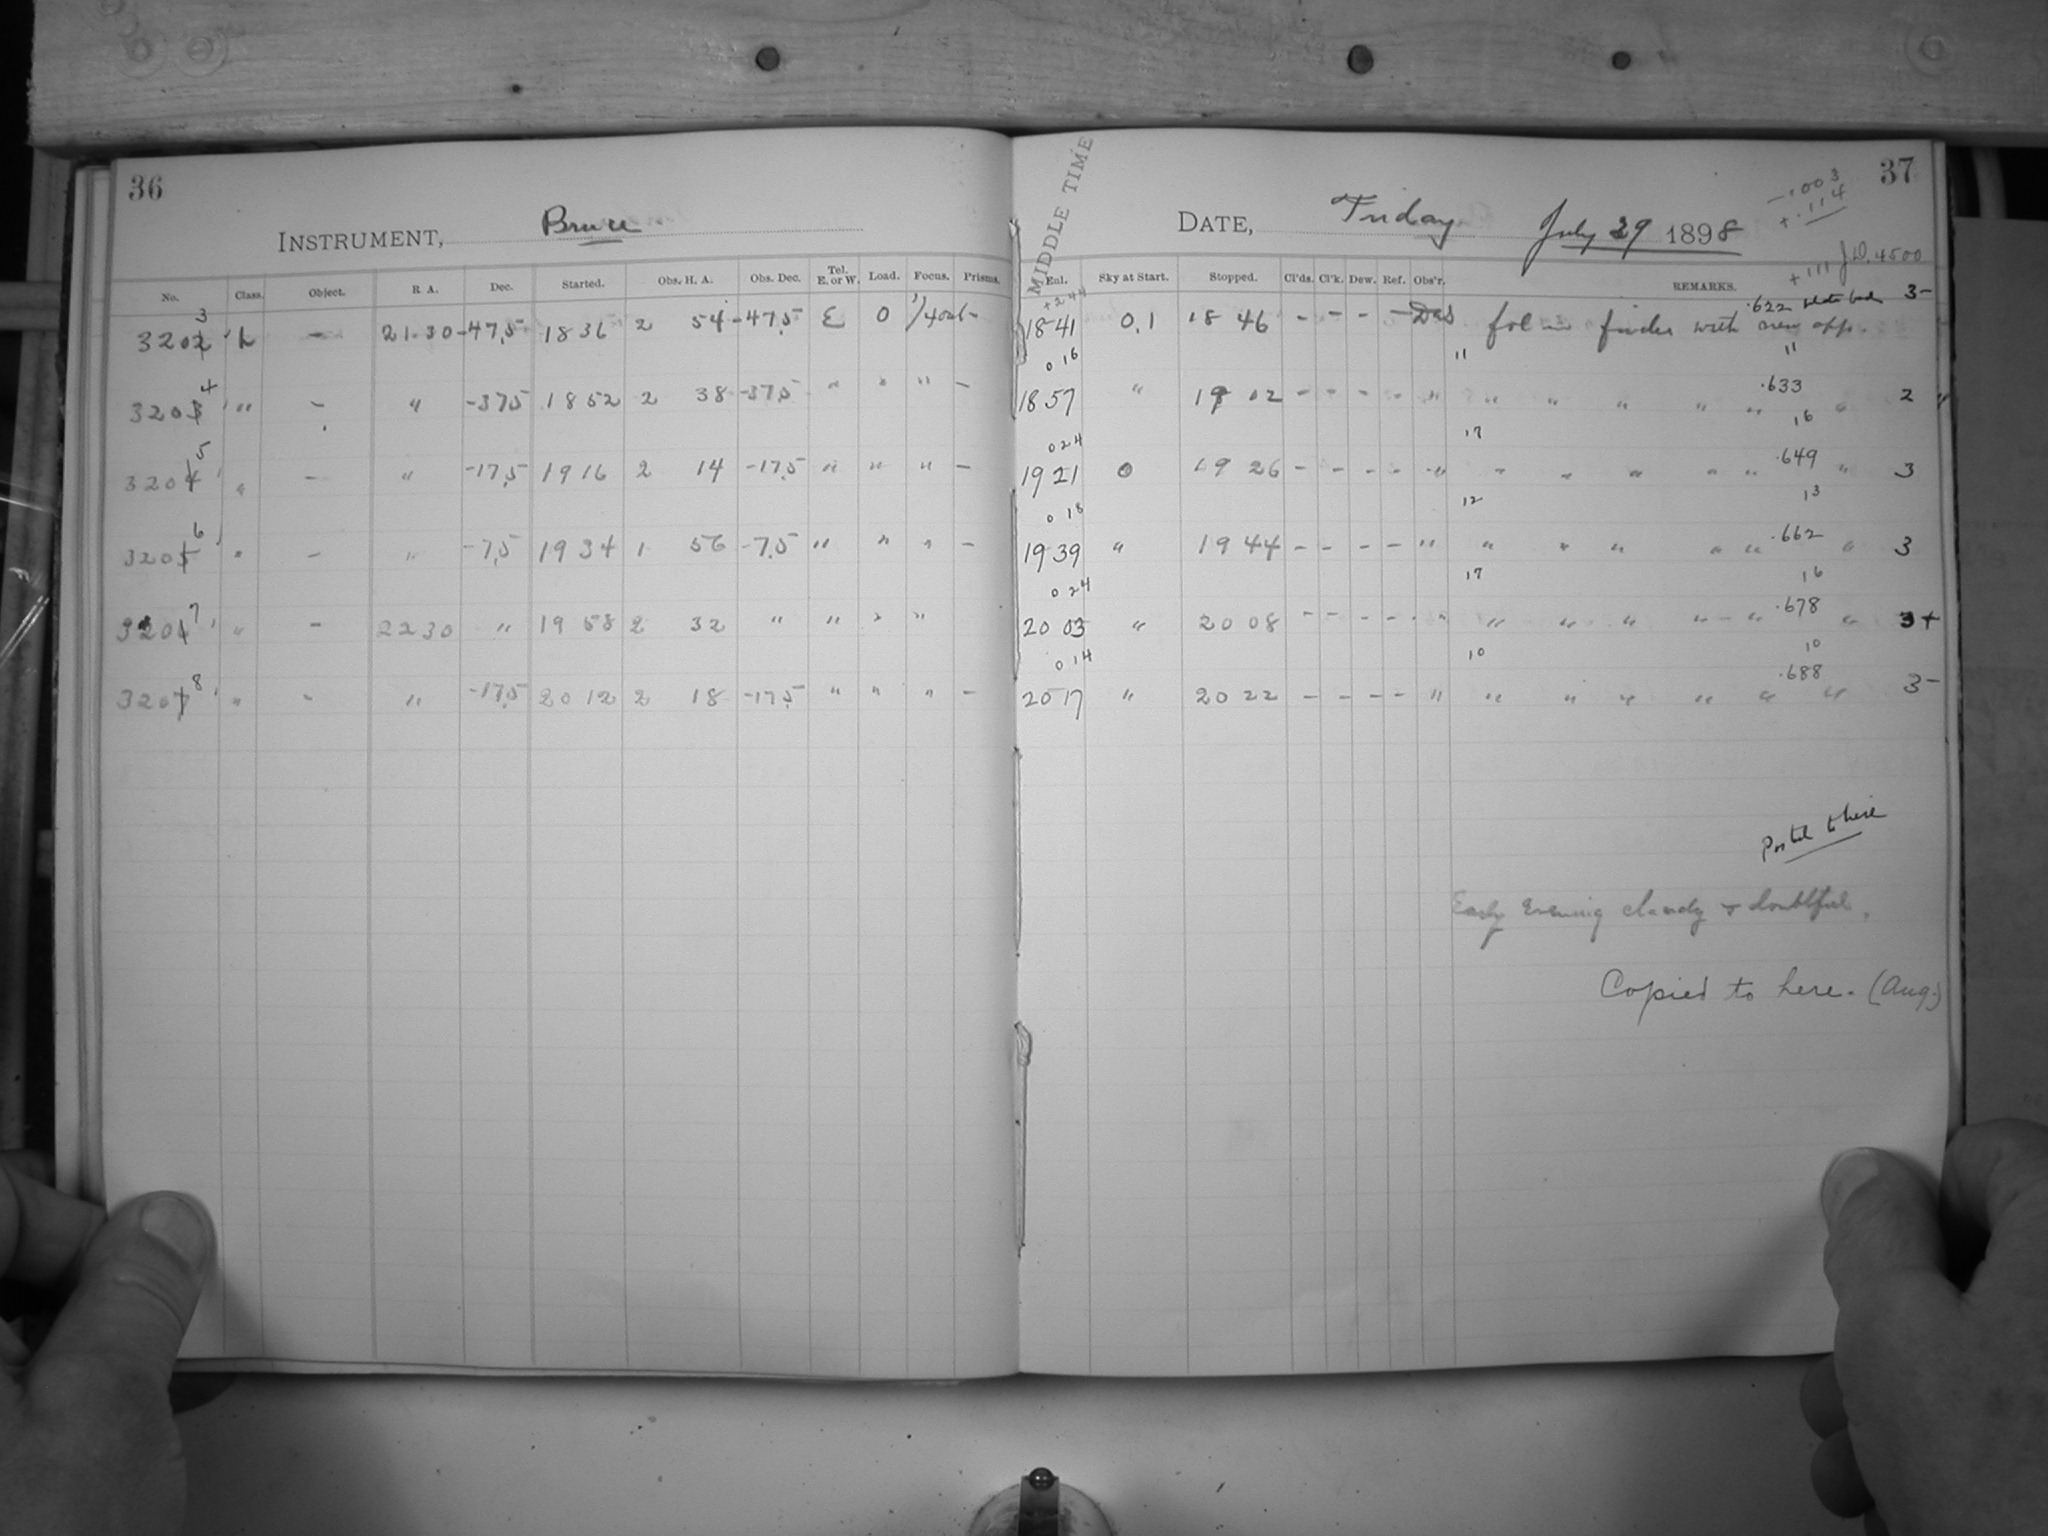 36
INSTRUMENT, Bruce
No. Class. Object. R A. Dec. Started. Obs. H. A. Obs. Dec. Tel. E. or W. Load. Focus. Prisms.
3202 3 L - 21.30 -47.5 1836 2 54 -47.5 E 0 -
3203 4 " - " -37.5 1852 2 38 -37.5 " " " -
3204 5 " - " -17.5 1916 2 14 -17.5 " " " -
3205 6 " - " -7.5 1934 1 56 -7.5 " " " -
3206 7 " - 2230 " 1958 2 32 " " " "
3207 8 " - " -17.5 2012 2 18 -17.5 " " " -
37
MIDDLE TIME
DATE, Friday July 29 1898
-.003
+.114
+111 J.D. 4500
Eul. Sky at Start. Stopped. Cl'ds. Cl'k. Dew. Ref. Obs'r. REMARKS.
+244
.622
1841 0.1 18 46 - - - - fol in finder with new app. 3-
0 16 11 11
1857 " 19 02 - - - - " " " " " " .633 " 2 "
024 17 16
1921 0 19 26 - - - - " " " " " " .649 " 3
0 18 12 13
1939 " 19 44 - - - - " " " " " " .662 " 3
0 24 17 16
2003 " 20 08 - - - - " " " " " " .678 " 3+
0 14 10 10
2017 " 20 22 - - - - " " " " " " .688 " 3-
Posted to here
Early Evening cloudy & doubtful.
Copied to here. (Aug.)